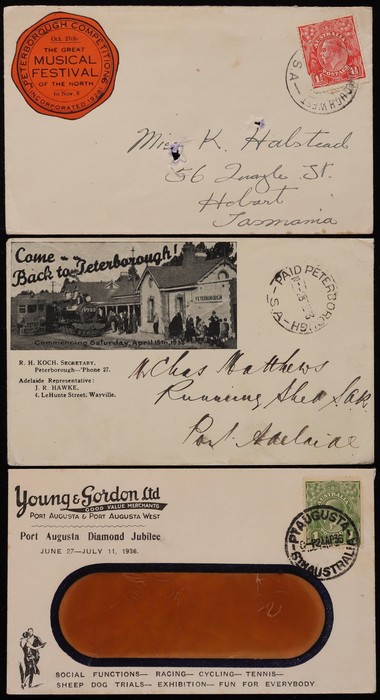 PETERBOROUGH COMPETITIONS
Oct. 27th
THE GREAT
MUSICAL
FESTIVAL
OF THE NORTH
to Nov. 8
INCORPORATED
AUSTRALIA
1½
PENCE
S A
Miss K. Halstead
56 Quayle St.
Hobart
Tasmania
Come
Back to Peterborough!
PETERBOROUGH
Commencing Saturday, April 15th, 1933
PAID PETERBOROUGH
S.A.
R. H. KOCH, SECRETARY,
Peterborough—'Phone 27.
Adelaide Representative:
J. R. HAWKE,
4, LeHunte Street, Wayville.
Mr Chas Matthews
Running Shed S.A.R.
Port Adelaide
Young & Gordon Ltd
GOOD VALUE MERCHANTS
PORT AUGUSTA & PORT AUGUSTA WEST
Port Augusta Diamond Jubilee
JUNE 27—JULY 11, 1936.
PT AUGUSTA
STH AUSTRALIA
SOCIAL FUNCTIONS— RACING— CYCLING— TENNIS—
SHEEP DOG TRIALS— EXHIBITION— FUN FOR EVERYBODY.